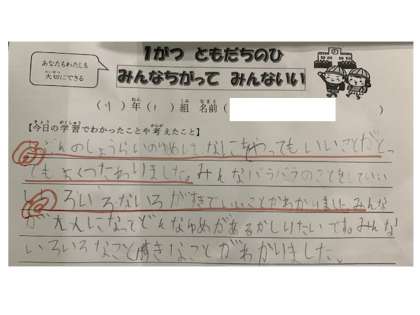 あなたもわたしも
大切にできる
1がつ ともだちのひ
みんなちがって みんないい
(1)年(1)組 名前( )
【今日の学習でわかったことや考えたこと】
じぶんのしょうらいのゆめしを、なにをやってもいいことだとっ
てもよくつたわりました。みんなバラバラのことをしていい
いろいろないろができていいことがわかりました。みんな
が大人になってどんなゆめがあるかしりたいです。みんな
いろいろなこと好きなことがわかりました。